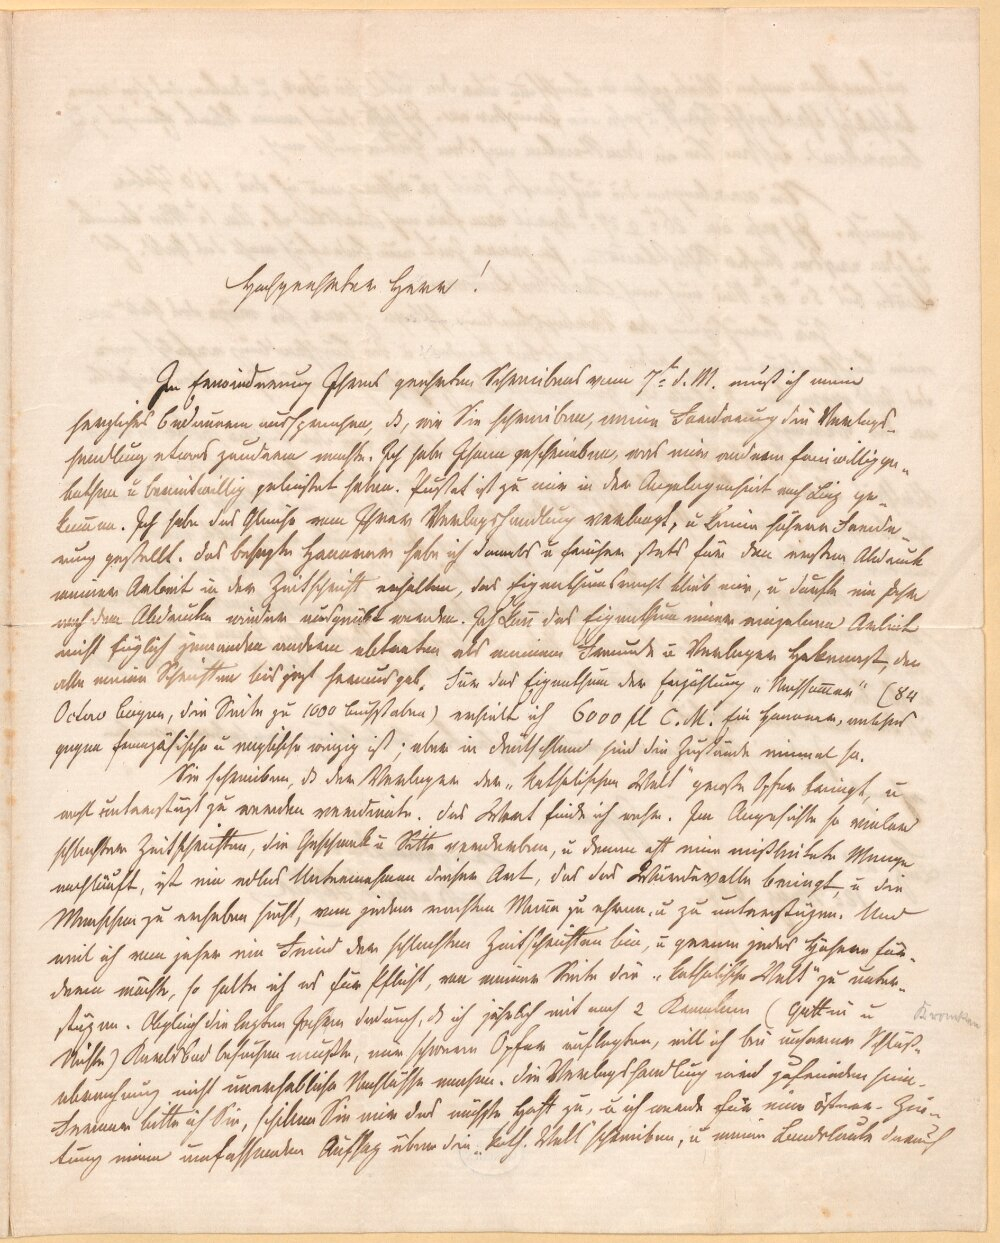 Hochgeehrter Herr!
In Erwiederung Ihres geehrten Schreibens vom 7ten d. M. muß ich mein
herzliches Bedauern aussprechen, dß, wie Sie schreiben, meine Forderung die Verlags-
handlung etwas zaudern machte. Ich habe Ihnen geschrieben, was mir andere freiwillig ge-
bothen u bereitwillig geleistet haben. Pustet ist zu mir in der Angelegenheit nach Linz ge-
kommen. Ich habe das Gleiche von Ihrer Verlagshandlung verlangt, u keine höhere Forde-
rung gestellt. Das besagte Honorar habe ich damals u früher stets für den ersten Abdruck
meiner Arbeit in der Zeitschrift erhalten, das Eigenthumsrecht blieb mir, u durfte ein Jahr
nach dem Abdrucke wieder ausgeübt werden. Ich kan das Eigenthum einer einzelnen Arbeit
nicht füglich jemanden anderen abtreten als meinem Freunde u Verleger Hekenast, der
alle meine Schriften bis jezt herausgab. Für das Eigenthum der Erzählung „Nachsommer" (84
Octav bogen, die Seite zu 1000 Buchstaben) erhielt ich 6000 fl C. M. Ein Honorar, welches
gegen französische u englische winzig ist; aber in Deutschland sind die Zustände einmal so.
Sie schreiben, dß der Verleger der „katholischen Welt" große Opfer bringt, u
wohl unterstüzt zu werden verdiente. Das Wort finde ich wahr. Im Angesichte so vieler
schlechter Zeitschriften, die Geschmack u Sitte verderben, u denen oft eine mißleitete Menge
nachläuft, ist ein edles Unternehmen dieser Art, das das Würdevolle bringt, u die
Menschen zu erheben sucht, von jedem rechten Manne zu ehren, u zu unterstüzen. Und
weil ich von jeher ein Feind der schlechten Zeitschriften bin, u gerne jedes Höhere för-
dern möchte, so halte ich es für Pflicht, von meiner Seite die „katholische Welt" zu unter-
stüzen. Obgleich die lezten Jahre dadurch, dß ich jährlich mit noch 2 Kranken (Gattin u
Nichte) Karlsbad besuchen mußte, mir schwere Opfer auflegten, will ich bei unserer Schluß-
abrechnung nicht unerhebliche Nachlässe machen. Die Verlagshandlung wird zufrieden sein.
Ferner bitte ich Sie, schiken Sie mir das nächste Heft zu, u ich werde für eine österr. Zei-
tung einen umfassenden Aufsaz über die „kath. Welt schreiben, u meine Landsleute darauf